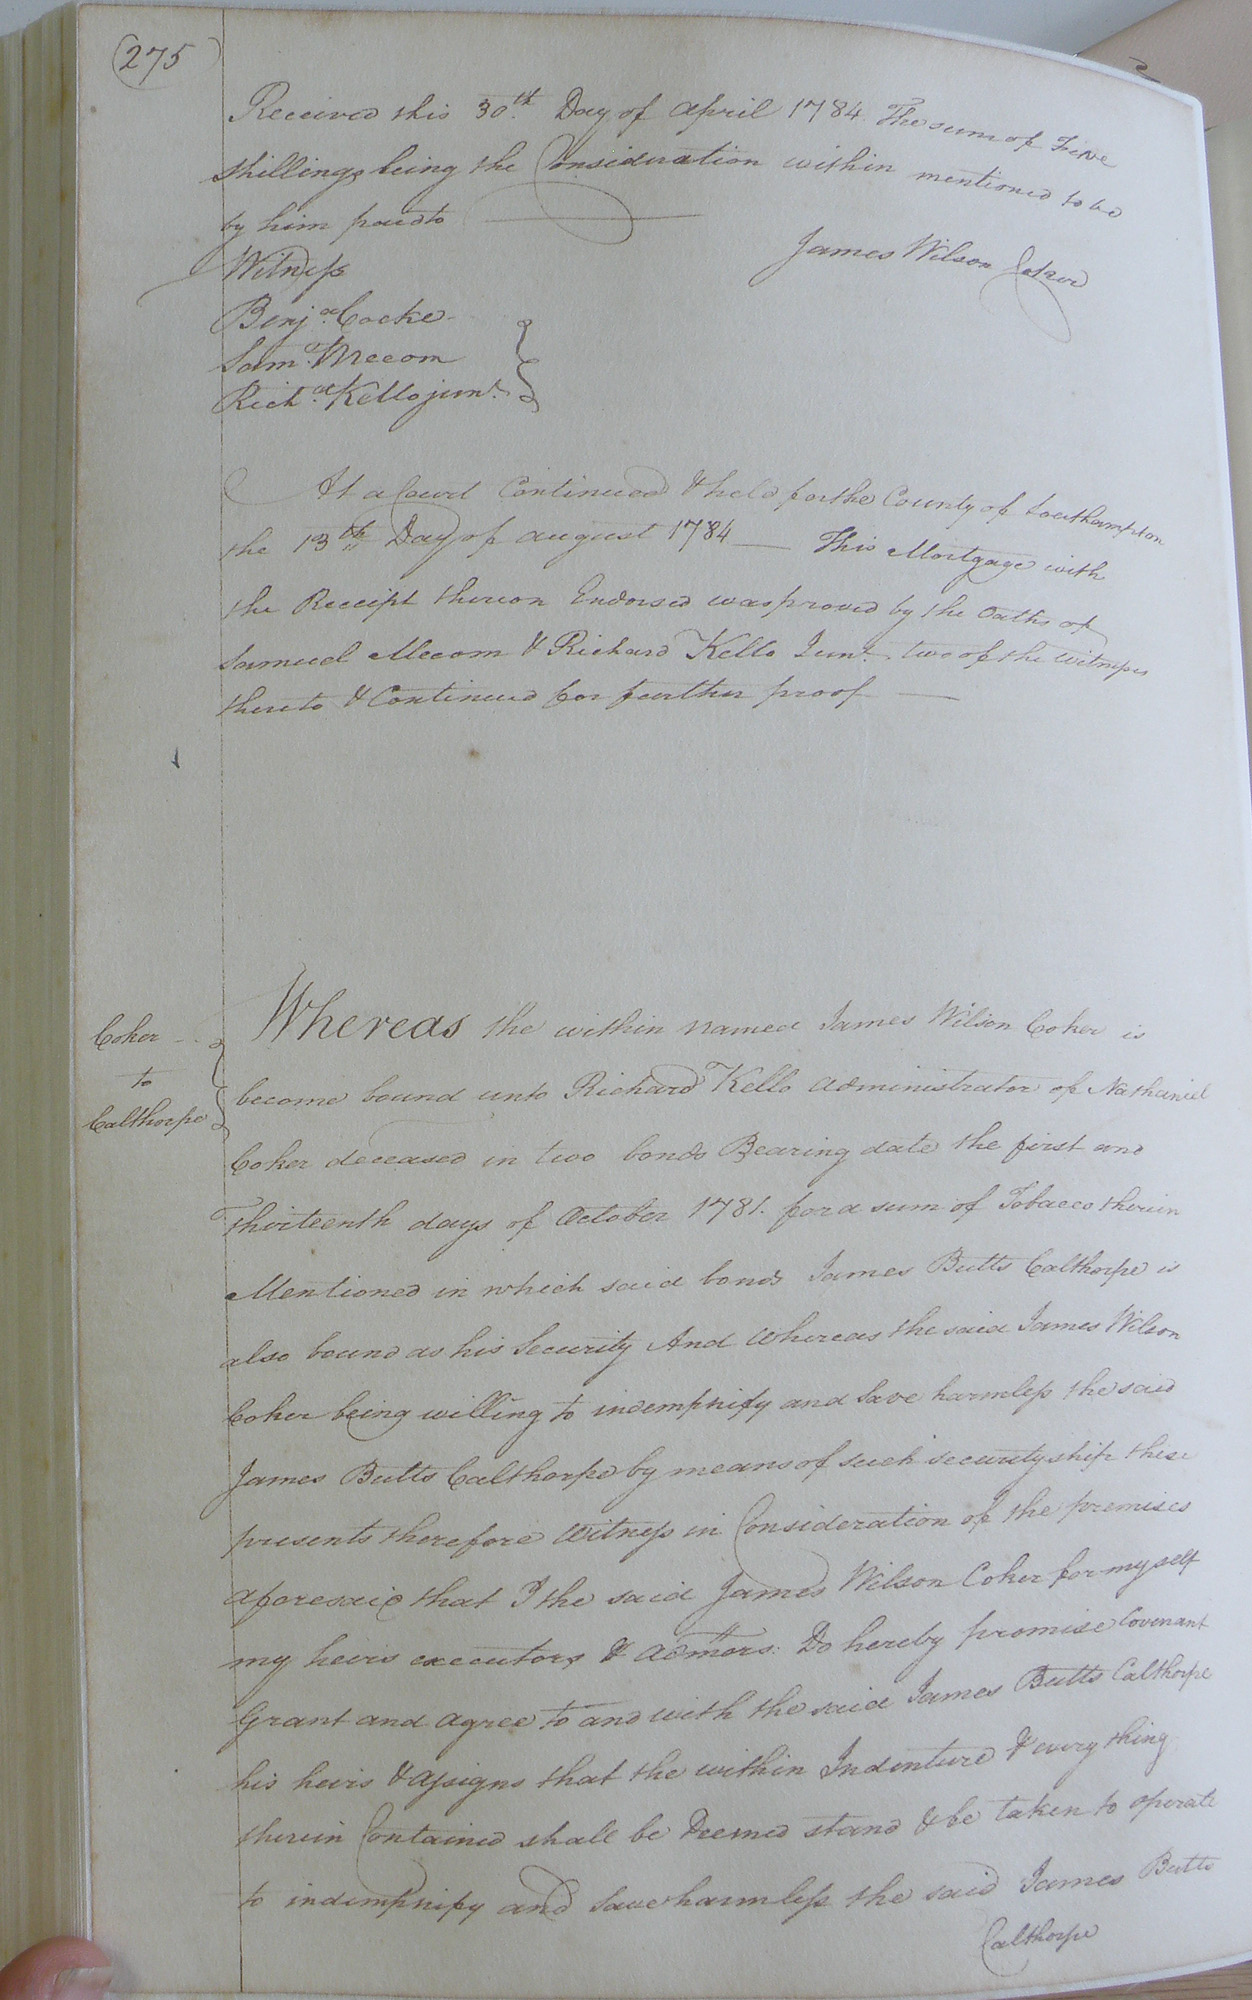 (275)
Received this 30th Day of April 1784 The sum of Five
shillings being the Consideration within mentioned to be
by him paid to
James Wilson Coker
Witness
Benja. Cocke
Saml. Mecom
Richd. Kello junr.
At a Court Continued & held for the County of Southampton
the 13th Day of august 1784 — This Mortgage with
the Receipt thereon Endorsed was proved by the Oaths of
Samuel Mecom & Richard Kello Junr. two of the witnesses
thereto & Continued for further proof —
Coker
to
Calthorpe
Whereas the within named James Wilson Coker is
become bound unto Richard Kello administrator of Nathaniel
Coker deceased in two bonds Bearing date the first and
Thirteenth days of October 1781. for a sum of Tobacco therein
Mentioned in which said bonds James Butts Calthorpe is
also bound as his Security And Whereas the said James Wilson
Coker being willing to indempnify and Save harmless the said
James Butts Calthorpe by means of such securityship these
presents therefore Witness in Consideration of the premises
aforesaid that I the said James Wilson Coker for myself
my heirs executors & admors: Do hereby promise Covenant
Grant and agree to and with the said James Butts Calthorpe
his heirs & assigns that the within Indenture & every thing
therein Contained shall be Deemed stand & be taken to operate
to indempnify and Save harmless the said James Butts
Calthorpe